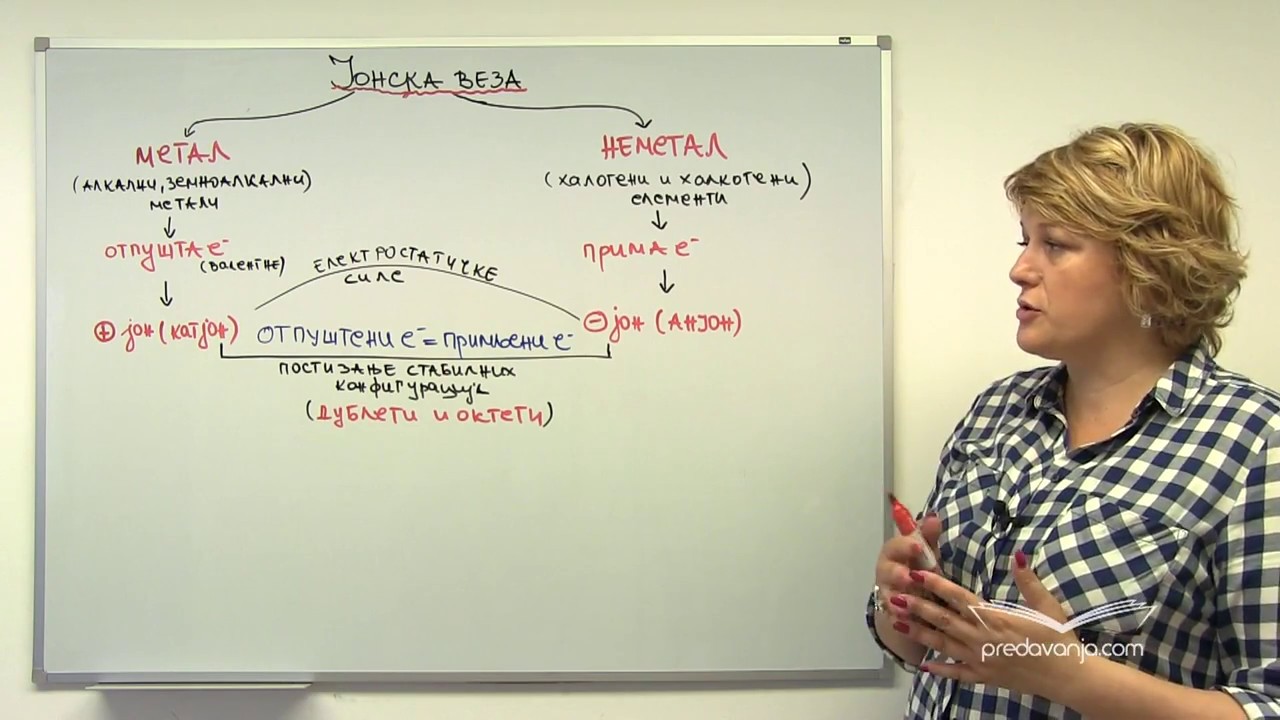 Јонска веза
МЕТАЛ
(алкални, земноалкални)
метали
отпушта е⁻
(валентне)
⊕ јон (катјон)
НЕМЕТАЛ
(халогени и халкогени)
елементи
прима е⁻
⊖ јон (анјон)
електростатичке
силе
отпуштени е⁻ = примљени е⁻
постизање стабилних
конфигурација
(дублети и октети)
predavanja.com